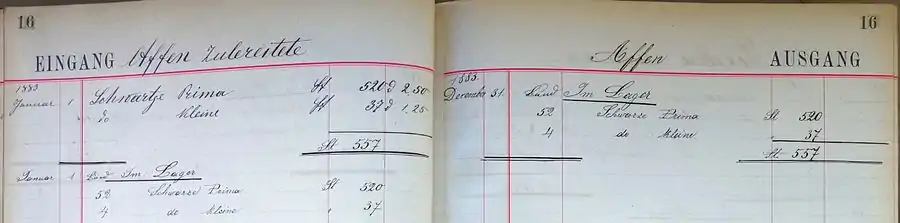 16
EINGANG Affen zubereitete
1883
Januar 1 Schwartze Prima St 520 à 2.50
do Kleine St 37 à 1.25
St 557
Januar 1 Bund Im Lager
52 Schwarze Prima St 520
4 do Kleine " 37
16
Affen AUSGANG
1883.
December 31. Bund Im Lager
52 Schwarze Prima St 520
4 do Kleine " 37
St 557